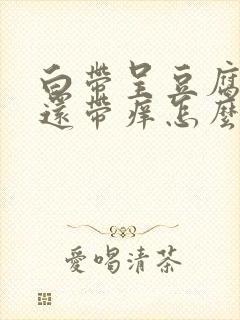 白帶呈豆腐
還帶痒怎麼
愛喝清茶